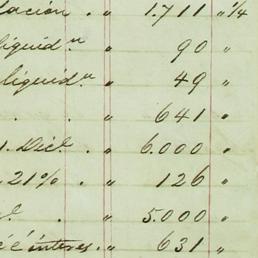 lación . " 1.711 " 1/4
líquidn " 90 "
líquidn " 49 "
. . " 641 "
1. Dicl . " 6.000 "
21% . " 126 "
. " 5.000 "
é interes . " 631 "